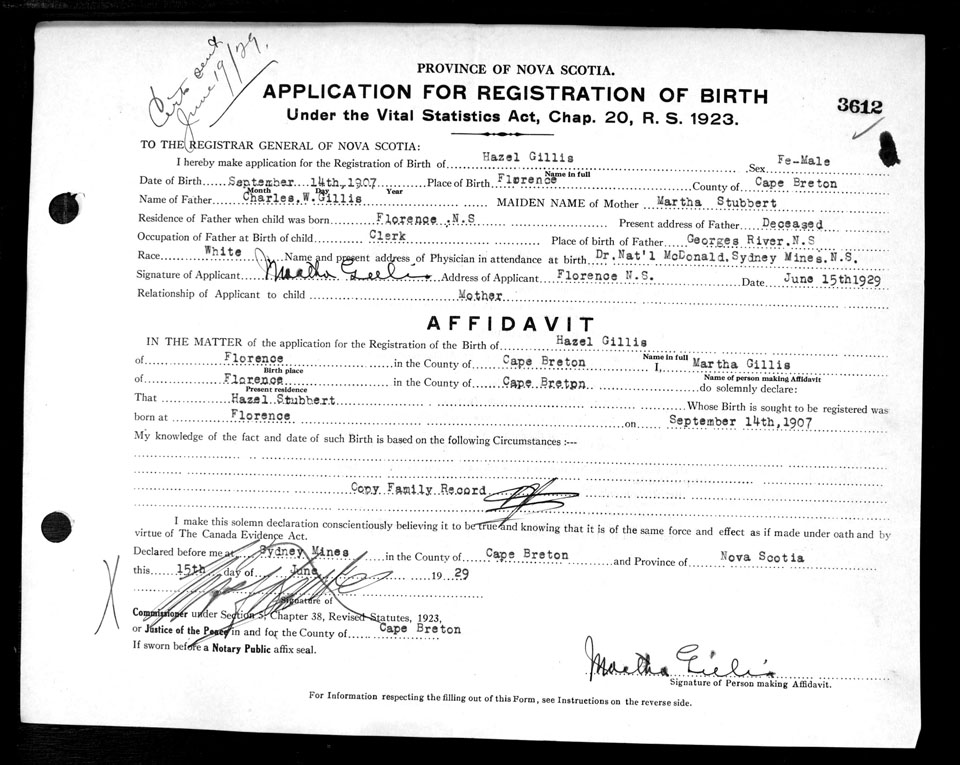 Certs sent
June 19/29.
PROVINCE OF NOVA SCOTIA.
APPLICATION FOR REGISTRATION OF BIRTH
3612
Under the Vital Statistics Act, Chap. 20, R. S. 1923.
TO THE REGISTRAR GENERAL OF NOVA SCOTIA:
I hereby make application for the Registration of Birth of Hazel Gillis Sex Fe-Male
Name in full
Date of Birth September 14th,1907 Place of Birth Florence County of Cape Breton
Month Day Year
Name of Father Charles.W.Gillis MAIDEN NAME of Mother Martha Stubbert
Residence of Father when child was born Florence .N.S Present address of Father Deceased
Occupation of Father at Birth of child Clerk Place of birth of Father Georges River.N.S
Race White Name and present address of Physician in attendance at birth Dr.Nat'l McDonald.Sydney Mines.N.S.
Signature of Applicant Martha Gillis Address of Applicant Florence N.S. Date June 15th1929
Relationship of Applicant to child Mother
AFFIDAVIT
IN THE MATTER of the application for the Registration of the Birth of Hazel Gillis
Name in full
of Florence in the County of Cape Breton I, Martha Gillis
Birth place Name of person making Affidavit
of Florence in the County of Cape Breton do solemnly declare:
Present residence
That Hazel Stubbert Whose Birth is sought to be registered was
born at Florence on September 14th,1907
My knowledge of the fact and date of such Birth is based on the following Circumstances :---
Copy Family Record
I make this solemn declaration conscientiously believing it to be true and knowing that it is of the same force and effect as if made under oath and by
virtue of The Canada Evidence Act.
Declared before me at Sydney Mines in the County of Cape Breton and Province of Nova Scotia
this 15th day of June 19 29
X
Signature of
Commissioner under Section 3, Chapter 38, Revised Statutes, 1923,
or Justice of the Peace in and for the County of Cape Breton
If sworn before a Notary Public affix seal.
Martha Gillis
Signature of Person making Affidavit.
For Information respecting the filling out of this Form, see Instructions on the reverse side.